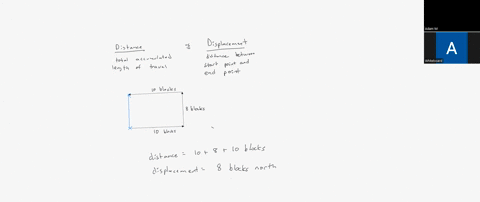 Distance & Displacement
total accumulated
length of travel
distance between
start point and
end point
10 blocks
8 blocks
10 blocks
distance = 10 + 8 + 10 blocks
displacement = 8 blocks north
A